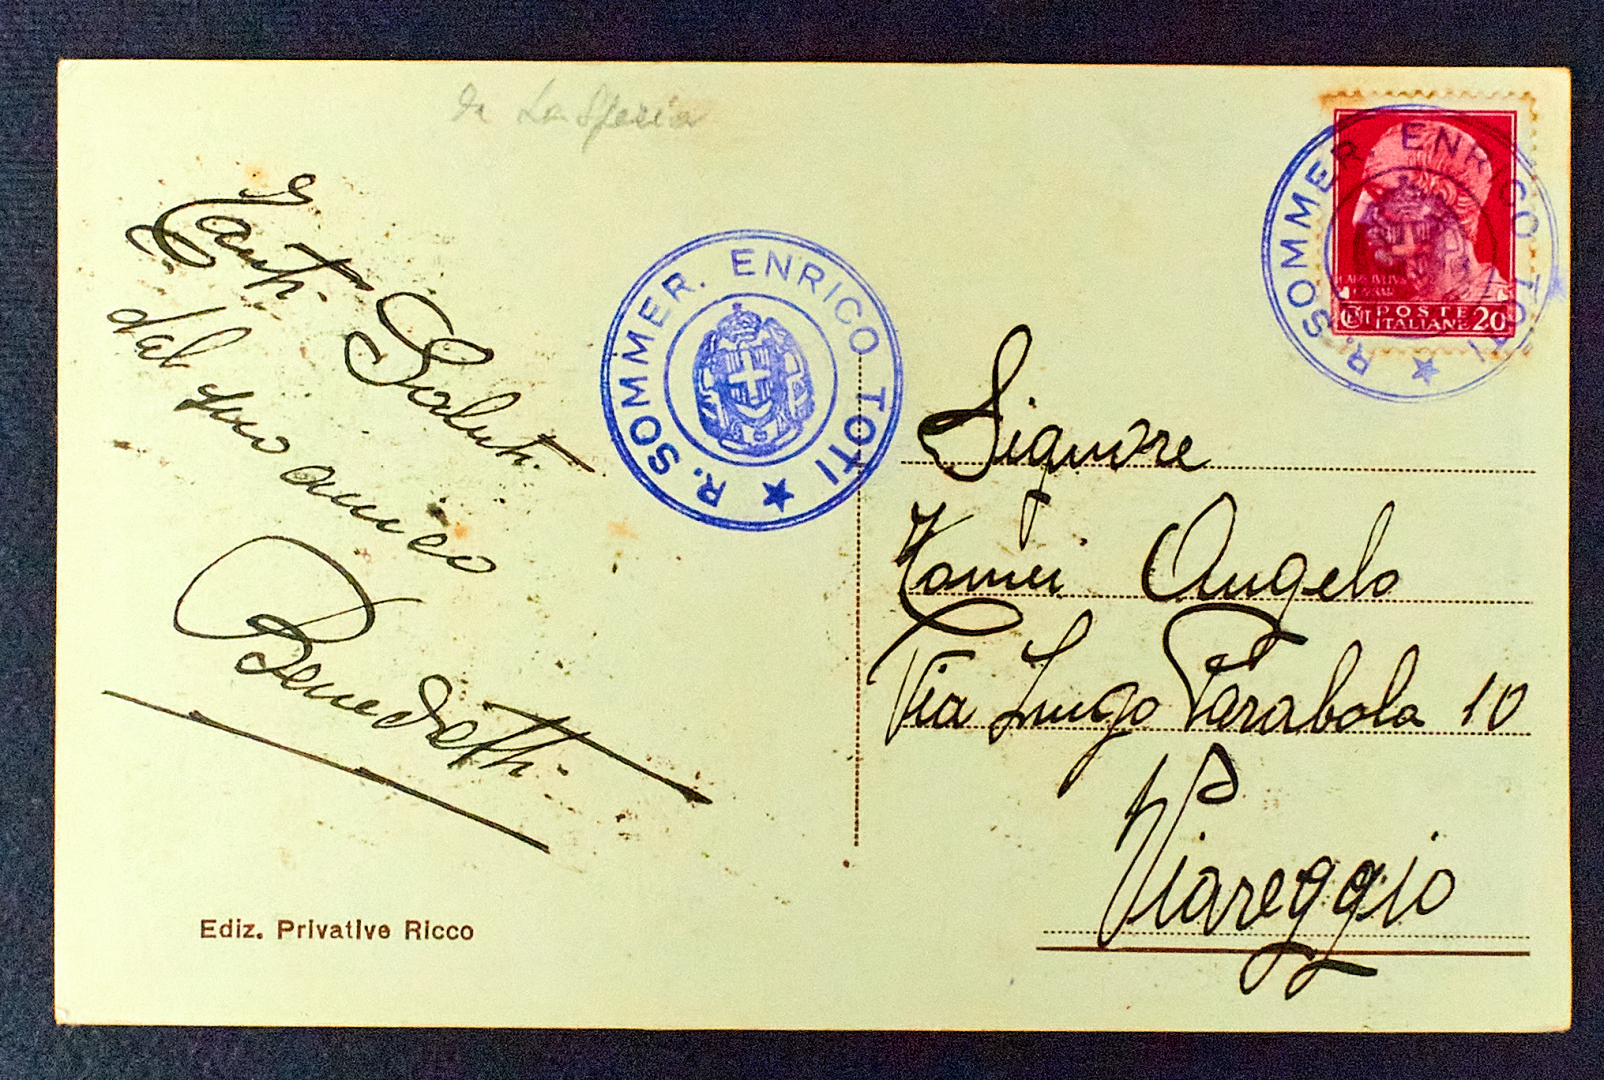 da La Spezia
Tanti Saluti
dal suo amico
Benedetti
Ediz. Privative Ricco
R. SOMMER. ENRICO TOTI ★
R. SOMMER. ENRICO TOTI ★
CENT POSTE ITALIANE 20
Signore
Angelo
Via Lungo Parabola 10
Viareggio